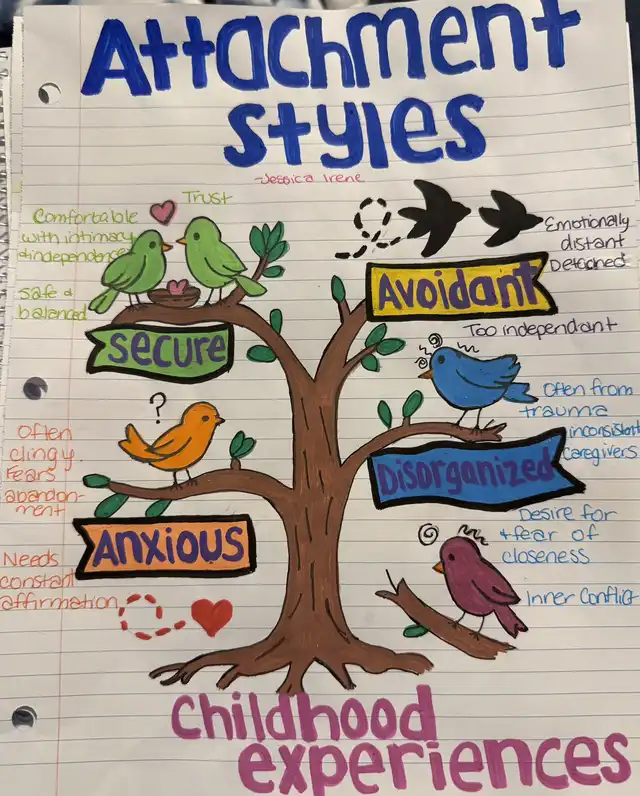 Attachment
styles
-Jessica Irene
Trust
Comfortable
with intimacy
& independence
safe &
balanced
Secure
Emotionally
distant
Detached
Avoidant
Too independent
?
Often
clingy
Fears
abandon-
ment
Anxious
Needs
constant
affirmation
Often from
trauma
inconsistent
caregivers
Disorganized
Desire for
+ fear of
closeness
Inner Conflict
Childhood
experiences